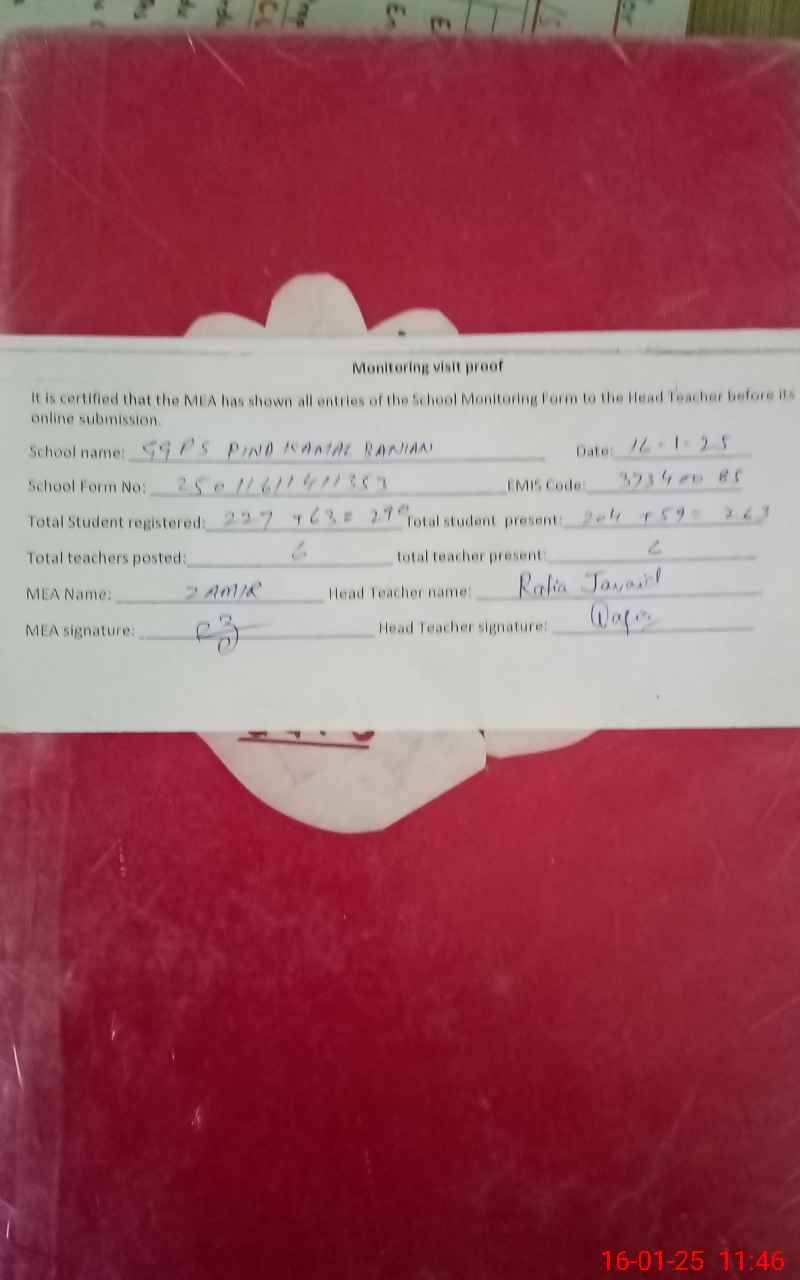 Monitoring visit proof
It is certified that the MEA has shown all entries of the School Monitoring Form to the Head Teacher before its
online submission.
School name: GGPS PIND KAMAL BANIAN Date: 16-1-25
School Form No: 2501161141135 EMIS Code:
Total Student registered: 227 + 63 = 290 Total student present: 204 + 59 = 263
Total teachers posted: 6 total teacher present: 6
MEA Name: ZAMIR Head Teacher name: Rafia Javaid
MEA signature: Head Teacher signature:
16-01-25 11:46